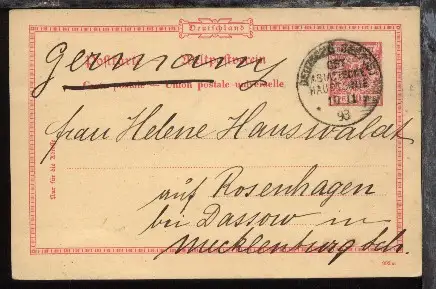 Deutschland
Postkarte Weltpostverein
Carte postale — Union postale universelle
Germany
DEUTSCHE SEEPOST
OST
ASIATISCHE
HAUPTLINIE
93
Frau Helene Hauswaldt
auf Rosenhagen
bei Dassow in
Mecklenburg Sch.
Nur für die Adresse